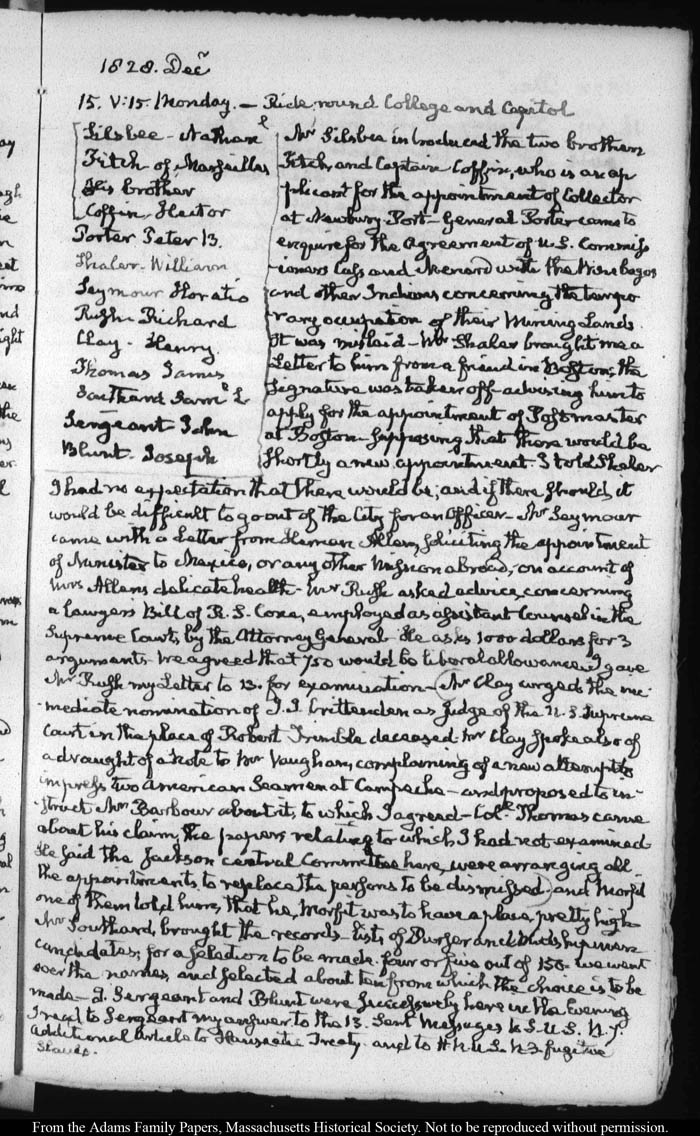 1828. Decr
15. V:15. Monday. — Ride round College and Capitol
Silsbee - Nathanl
Fitch of Marseilles
His brother
Coffin, Hector
Porter Peter B.
Shaler William
Seymour Horatio
Rush Richard
Clay. Henry
Thomas James
Southard Saml L
Sergeant John
Blunt. Joseph
Mr Silsbee introduced the two brothers
Fitch, and Captain Coffin, who is an ap
plicant for the appointment of Collector
at Newbury-Port — General Porter came to
enquire for the Agreement of U.S. Commiss
ioners Cass and Menard with the Winebagos
and other Indians concerning the tempo
rary occupation of their Mining Lands.
It was mislaid — Mr Shaler brought me a
Letter to him from a friend in Boston; the
Signature was taken off — advising him to
apply for the appointment of Postmaster
at Boston — supposing that there would be
shortly a new appointment. I told Shaler
I had no expectation that there would be; and if there should, it
would be difficult to go out of the City for an Officer — Mr Seymour
came with a Letter from Heman Allen, soliciting the appointment
of Minister to Mexico, or any other Mission abroad, on account of
Mrs Allens delicate health — Mr Rush asked advice, concerning
a lawyers Bill of R. S. Coxe, employed as assistant Counsel in the
Supreme Court, by the Attorney General. He asks 1000 dollars for 3
arguments — we agreed that 750 would be liberal allowance. I gave
Mr Rush my Letter to 13. for examination — Mr Clay urged the im-
-mediate nomination of J. J. Crittenden as Judge of the U.S. Supreme
Court in the place of Robert Trimble deceased. Mr Clay spoke also of
a draught of a Note to Mr Vaughan, complaining of a new attempt to
impress two American Seamen at Campeche — and proposed to in-
-struct Mr Barbour about it, to which I agreed — Coll Thomas came
about his claim, the papers relating to which, I had not examined.
He said the Jackson central Committee here, were arranging all
the appointments, to replace the persons to be dismissed, and Morfit
one of them told him, that he, Morfit was to have a place, pretty high
Mr Southard, brought the records — lists of Purser and Midshipmen
candidates; for a selection to be made. four or five out of 150. we went
over the names, and selected about ten from which the choice is to be
made — J. Sergeant and Blunt were successively here in the Evening
I read to Sergeant my answer to the 13. Sent Messages to S.U.S. N. 7.
additional Article to Hanseatic Treaty. and to H.R.U.S. N. 3. fugitive
Slaves.
From the Adams Family Papers, Massachusetts Historical Society. Not to be reproduced without permission.